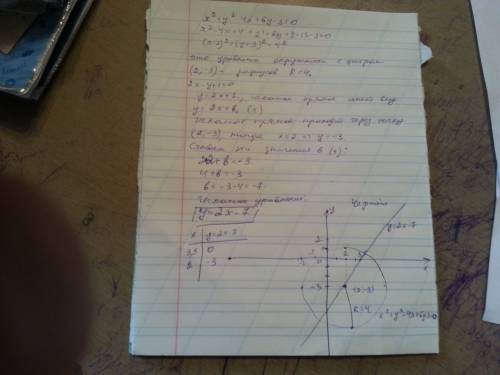 x²+y²-4x+6y-3=0
x²-4x+4+y²+6y+9-13-3=0
(x-2)²+(y+3)²=4²
это уравнение окружности с центром
(2;-3) и радиусом R=4.
2x-y+3=0
y=2x+3, искомая прямая имеет вид
y=2x+b, (1)
Искомая прямая проходит через точку
(2;-3), тогда x=2 и y=-3.
Ставим эти значения в (1):
2·2+b=-3
4+b=-3
b=-3-4=-7
Искомое уравнение:
y=2x-7
Чертёж
x y=2x-7
3,5 0
2 -3
y
y=2x-7
2
1
2
x
-3
(2;-3)
R=4
x²+y²-4x+6y-3=0